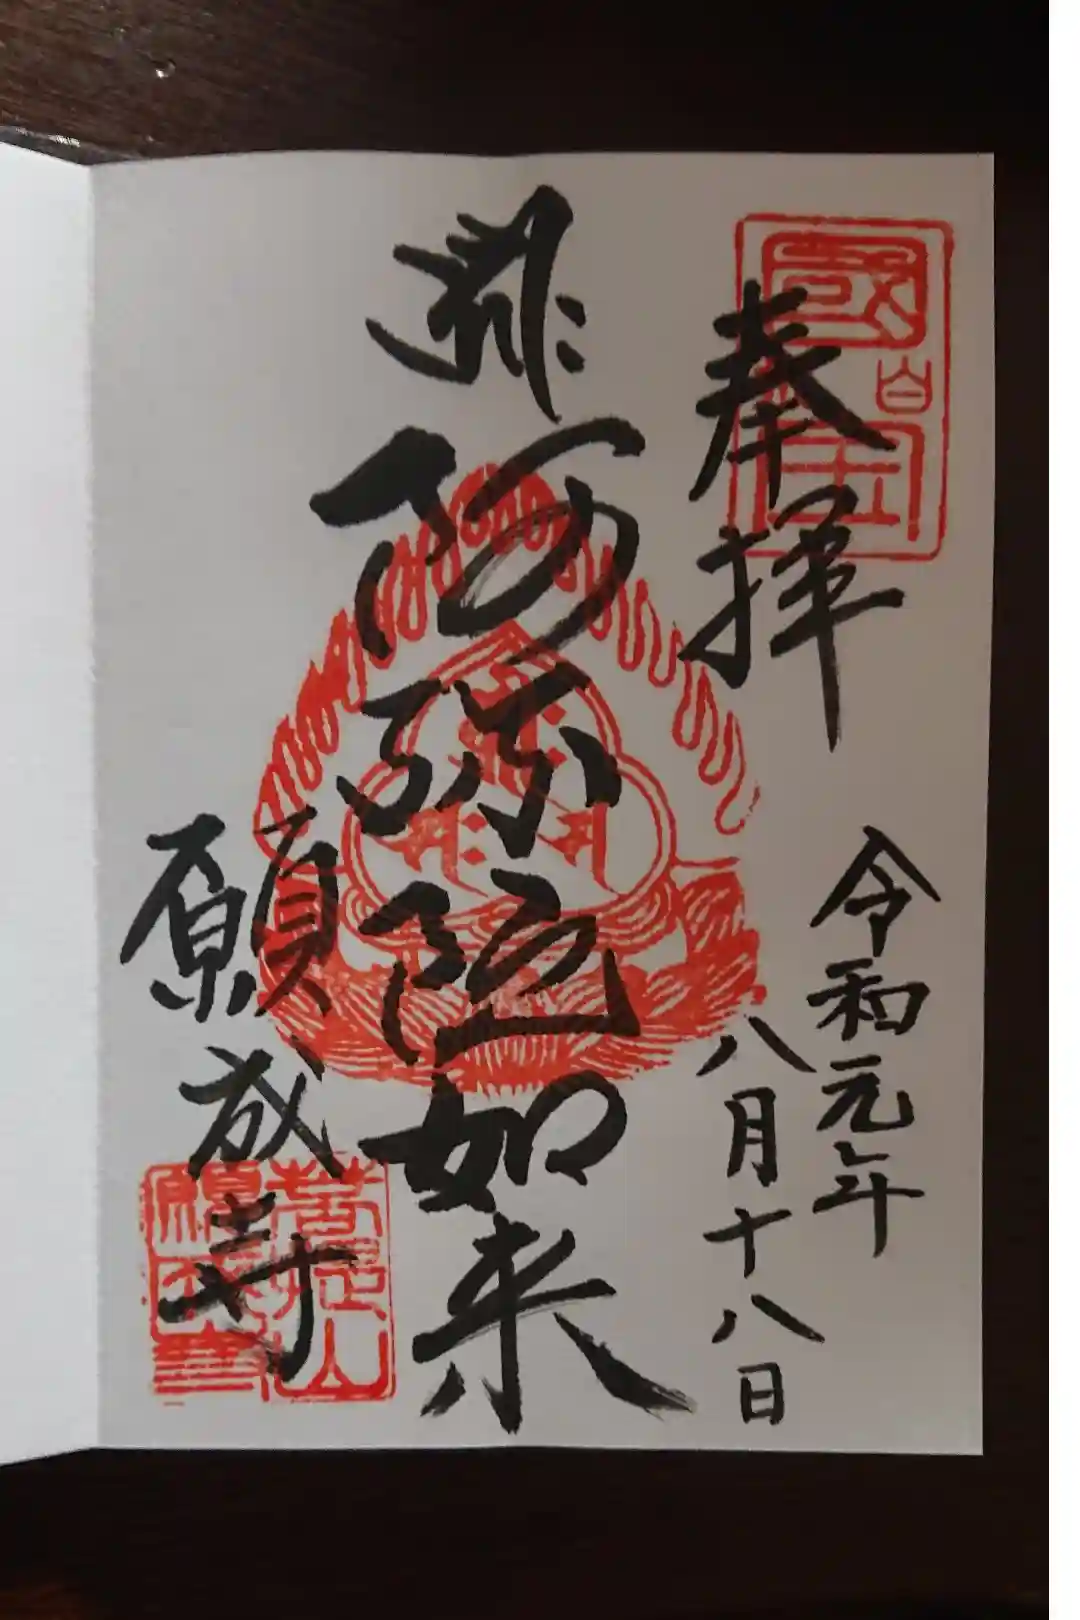 奉拝
令和元年
八月十八日
阿弥陀如来
願成寺
國宝